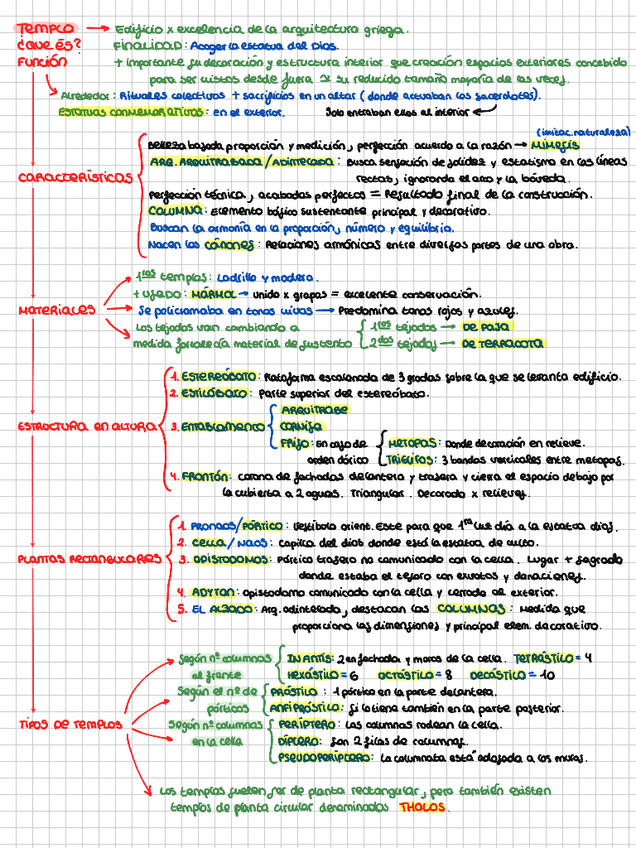 TEMPLO → Edificio x excelencia de la arquitectura griega.
¿QUE ÉS? FINALIDAD: Acoger la estatua del Dios.
FUNCIÓN + importante su decoración y estructura interior que creación espacios exteriores concebido
para ser vistos desde fuera x su reducido tamaño mayoría de las veces.
Alrededor: Rituales colectivos + sacrificios en un altar (donde actuaban los sacerdotes).
ESTATUAS CONMEMORATIVAS: en el exterior. Solo entraban ellos al interior
(imitac. naturaleza)
Belleza basada proporción y medición, perfección acuerdo a la razón → MÍMESIS
ARQ. ARQUITRABADA / ADINTELADA: Busca sensación de solidez y estatismo en las líneas
CARACTERÍSTICAS rectas, ignorando el arco y la bóveda.
Perfección técnica, acabados perfectos = Resultado final de la construcción.
COLUMNA: Elemento básico sustentante principal y decorativo.
Buscan la armonía en la proporción, número y equilibrio.
Nacen los cánones: Relaciones armónicas entre diversas partes de una obra.
1ros templos: Ladrillo y madera.
+ usado: MÁRMOL → unido x grapas = excelente conservación.
MATERIALES → Se policromaban en tonos vivos → Predomina tonos rojos y azules.
Los tejados van cambiando a 1ros tejados → DE PAJA
medida fortalecía material de sustento 2dos tejados → DE TERRACOTA
1. ESTEREÓBATO: Plataforma escalonada de 3 gradas sobre la que se levanta edificio.
2. ESTILÓBATO: Parte superior del estereóbato.
ARQUITRABE
ESTRUCTURA EN ALTURA 3. ENTABLAMENTO CORNISA
FRISO: En caso de METOPAS: Donde decoración en relieve.
orden dórico TRIGLIFOS: 3 bandas verticales entre metopas.
4. FRONTÓN: corona de fachadas delantera y trasera y cierra el espacio debajo por
la cubierta a 2 aguas. Triangular. Decorado x relieves.
1. PRONAOS/PÓRTICO: Vestíbulo orient. Este para que 1ra luz día a la estatua dios.
2. CELLA / NAOS: capilla del dios donde está la estatua de culto.
PLANTAS RECTANGULARES 3. OPISTODOMOS: Pórtico trasero no comunicado con la cella. Lugar + sagrado
donde estaba el tesoro con exvotos y donaciones.
4. ADYTON: opistodomo comunicado con la cella y cerrado al exterior.
5. EL ALZADO: Arq. adintelada, destacan las COLUMNAS: Medida que
proporciona las dimensiones y principal elem. decorativo.
Según nº columnas IN ANTIS: 2 en fachada y muros de la cella. TETRÁSTILO = 4
al frente HEXÁSTILO = 6 OCTÁSTILO = 8 DECÁSTILO = 10
Según el nº de PRÓSTILO: 1 pórtico en la parte delantera.
pórticos ANFIPRÓSTILO: Si lo tiene también en la parte posterior.
TIPOS DE TEMPLOS Según nº columnas PERÍPTERO: Las columnas rodean la cella.
en la cella DÍPTERO: Son 2 filas de columnas.
PSEUDOPERÍPTERO: La columnata está adosada a los muros.
Los templos suelen ser de planta rectangular, pero también existen
templos de planta circular denominados THOLOS.